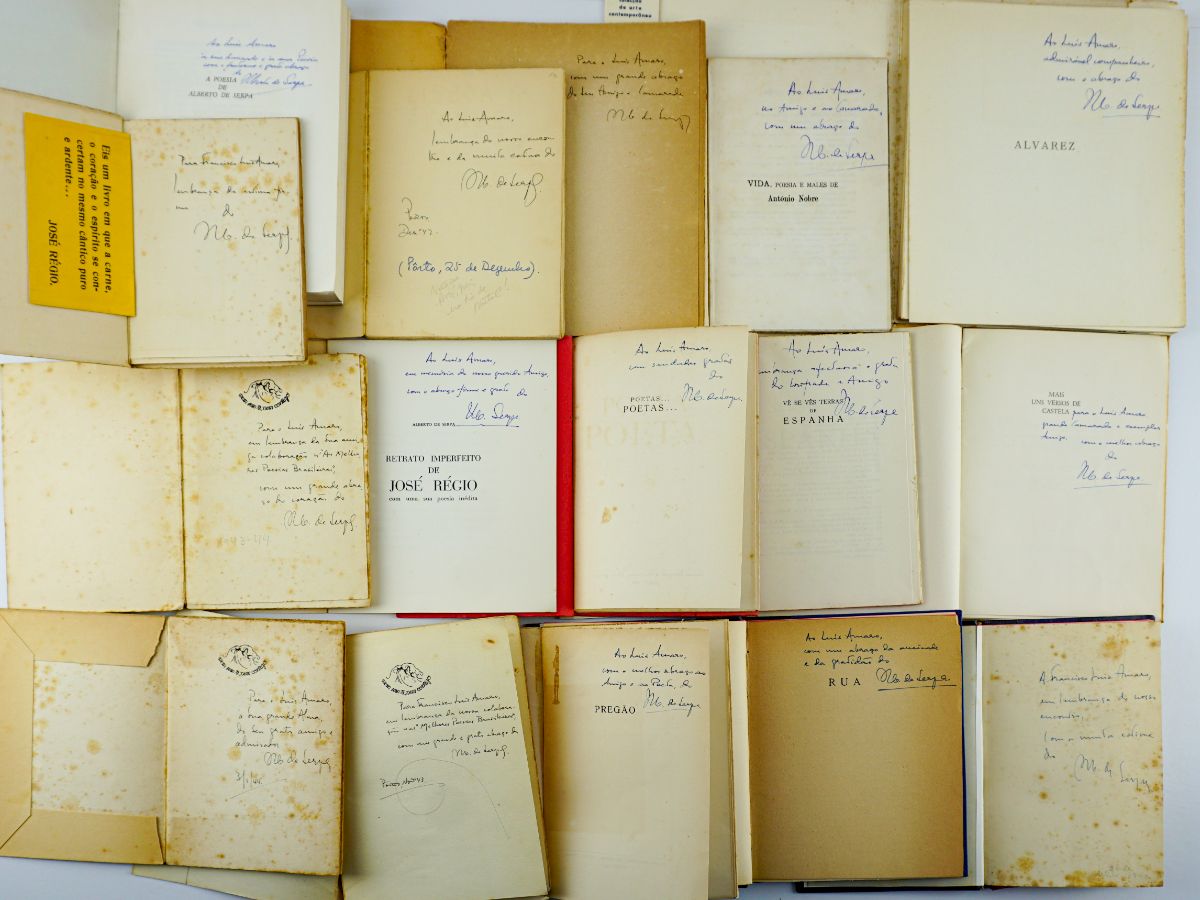 colecção
de arte
contemporânea
Ao Luís Amaro
A POESIA
DE
ALBERTO DE SERPA
Alberto de Serpa
Eis um livro em que a carne,
o coração e o espírito se con-
certam no mesmo cântico puro
e ardente...
JOSÉ RÉGIO.
Para Francisco Luís Amaro,
lembrança da
do
Alb. de Serpa
Ao Luís Amaro,
lembrança do nosso encon-
tro e da muita estima do
Alb. de Serpa
Porto
Dez. 43
(Pôrto, 25 de Dezembro).
Para o Luís Amaro,
com um grande abraço
do seu Amigo e Camarada
Alb. de Serpa
Ao Luís Amaro,
ao Amigo e ao Camarada,
com um abraço do
Alb. de Serpa
VIDA, POESIA E MALES DE
António Nobre
Ao Luís Amaro,
admirável companheiro,
com o abraço do
Alb. de Serpa
ALVAREZ
Para o Luís Amaro,
em lembrança da sua ami-
ga colaboração n'As Melho-
res Poesias Brasileiras,
com um grande abra-
ço do coração do
Alb. de Serpa
Ao Luís Amaro,
em memória do nosso querido Amigo,
com o abraço firme e grato do
Alb. Serpa
ALBERTO DE SERPA
RETRATO IMPERFEITO
DE
JOSÉ RÉGIO
com uma sua poesia inédita
Ao Luís Amaro,
com saudades gratas
do
Alb. de Serpa
POETAS...
POETAS...
Ao Luís Amaro,
lembrança afectuosa e grata
do Camarada e Amigo
Alb. de Serpa
VÊ SE VÊS TERRAS
DE
ESPANHA
MAIS
UNS VERSOS DE
CASTELA
para o Luís Amaro
grande Camarada e exemplar
Amigo, com o melhor abraço
do
Alb. de Serpa
Para o Luís Amaro,
a sua grande Alma,
do seu grato amigo e
admirador
Alb. de Serpa
Para Francisco Luís Amaro,
em lembrança da nossa colabora-
ção nas "Melhores Poesias Brasileiras",
com um grande e grato abraço do
Alb. de Serpa
Ao Luís Amaro,
com o melhor abraço ao
Amigo e ao Poeta, do
Alb. de Serpa
PREGÃO
Ao Luís Amaro,
com um abraço da amizade
e da gratidão do
Alb. de Serpa
RUA
A Francisco Luís Amaro,
em lembrança do nosso
encontro,
com a muita estima
do
Alb. de Serpa